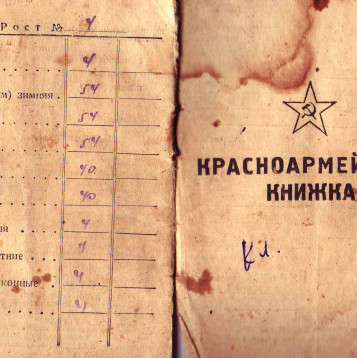 Рост № 4
4
м) зимняя . 54
54
54
40
40
я 4
тние . 4
конные 4
4
КРАСНОАРМЕЙ
КНИЖКА